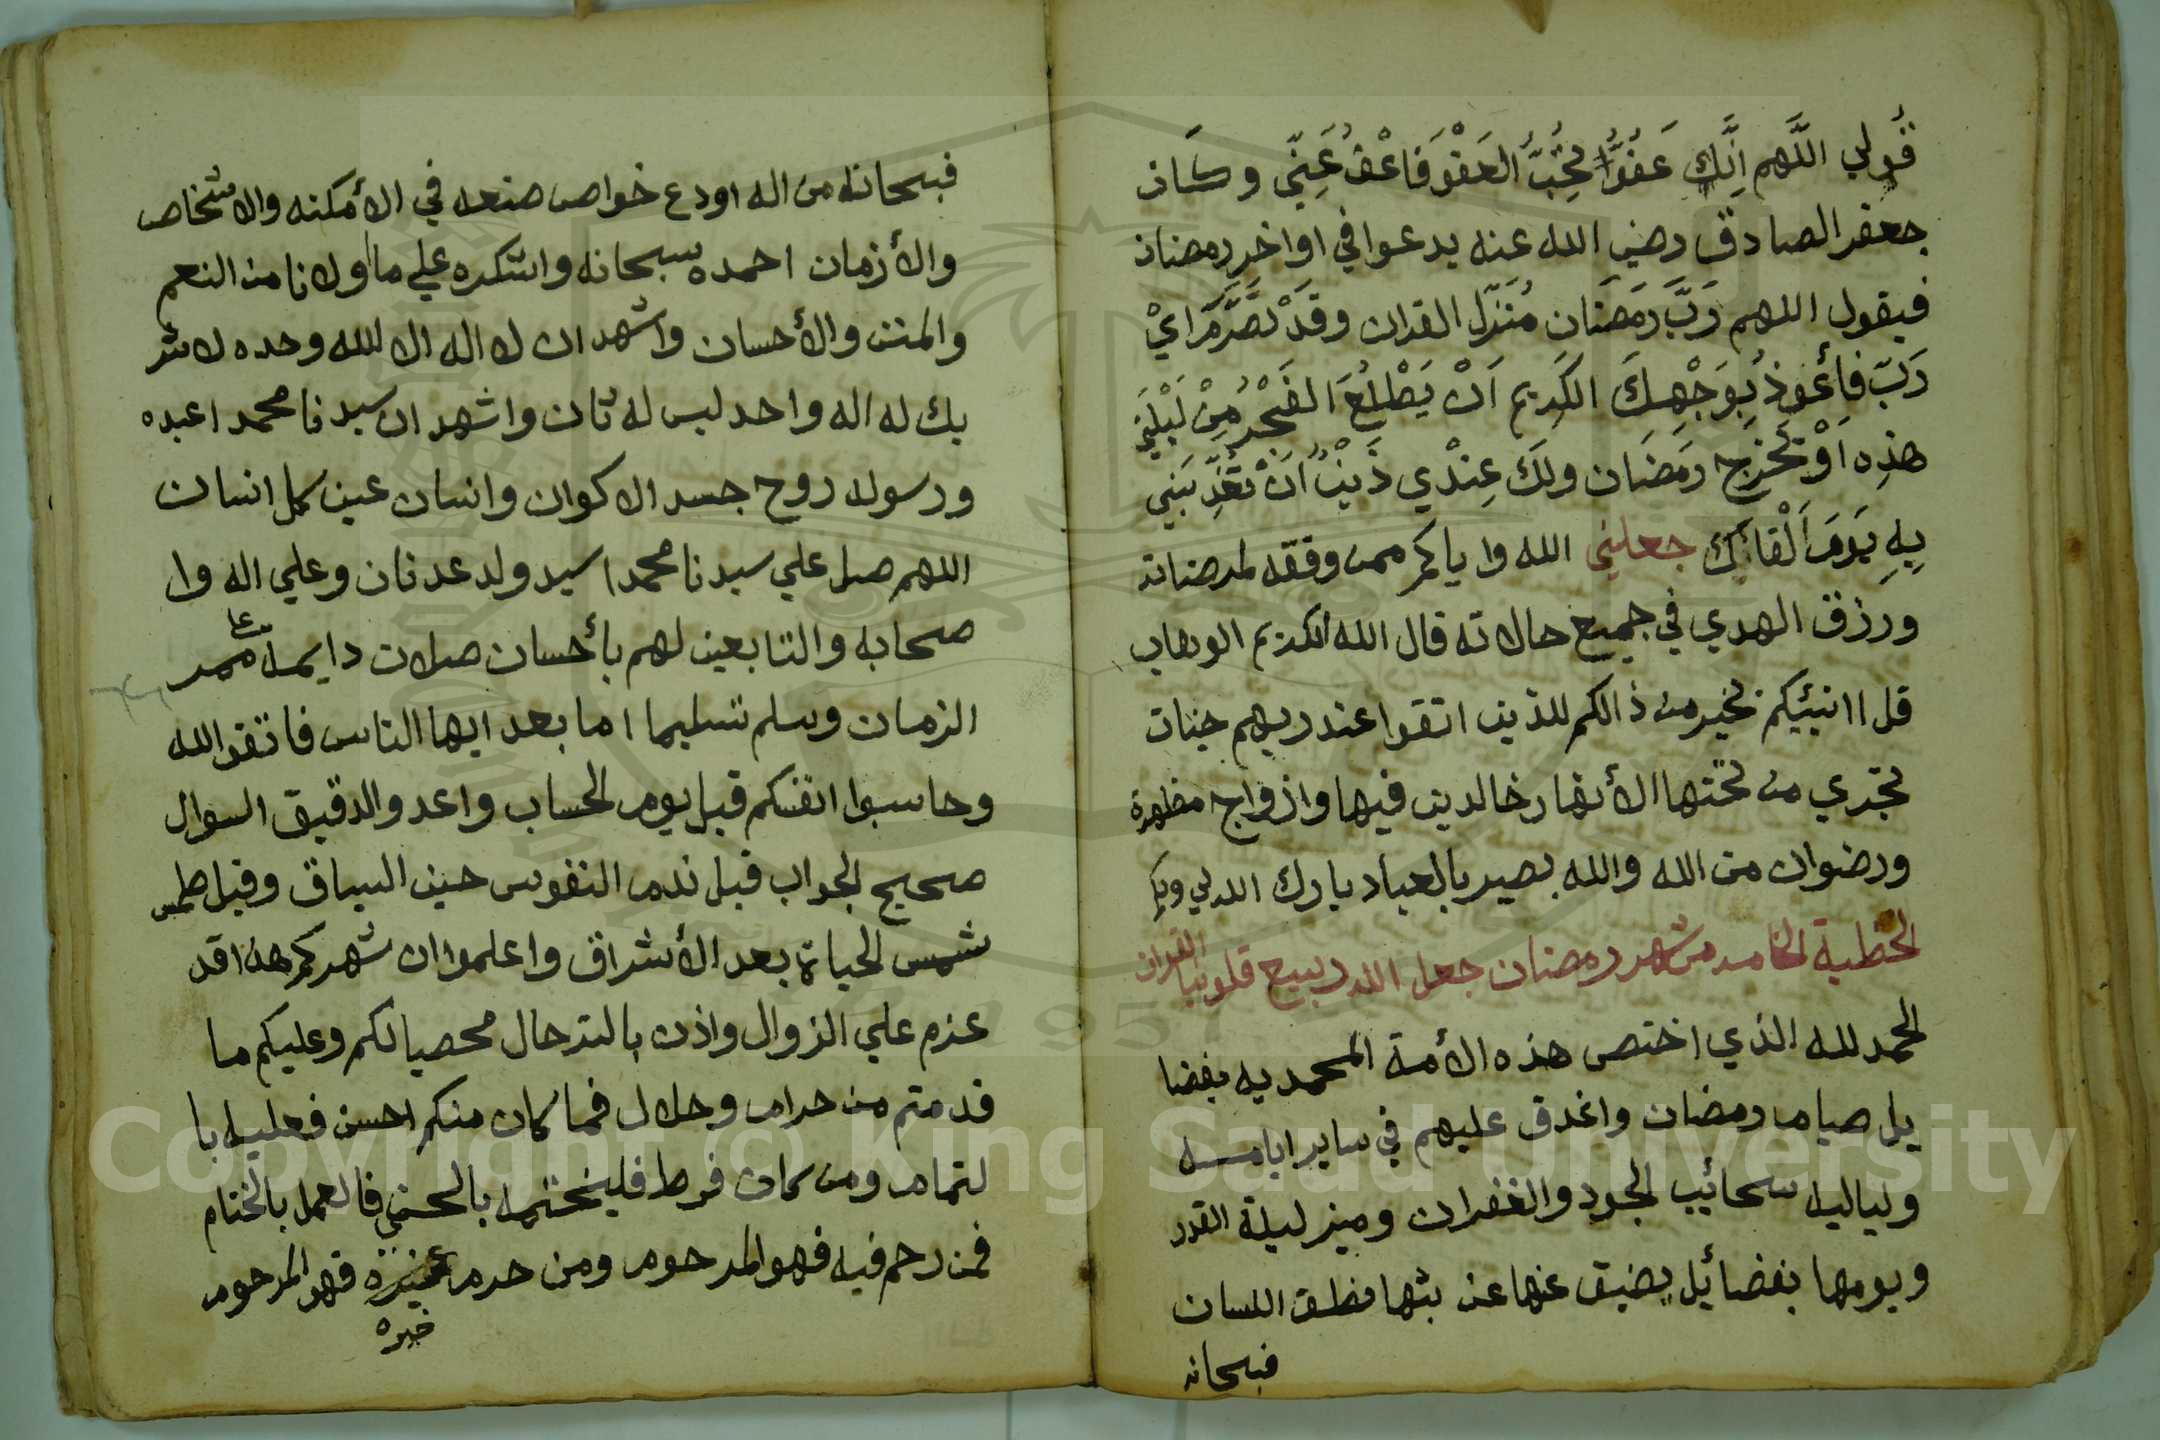 قُولي اللَّهم اِنَّكَ عَفُوٌّ تُحِبُّ العَفْوَ فَاعْفُ عَنِّي وكَان
جعفر الصادق رضي الله عنه يدعوا في اواخر رمضان
فيقول اللهم رَبَّ رَمَضَان مُنَزِّل القران وقَدْ تَصَرَّمَ ايْ
رَبّ فأَعُوذُ بِوَجْهِكَ الكَرِيم اَنْ يَطْلُعَ الفَجْرُ مِنْ لَيْلَتِي
هذِه اَوْ تَخْرج رَمَضَان ولَكَ عِنْدِي ذَنْبٌ اَنْ تُعَذِّبَنِي
بِهِ يَومَ اَلْقَاكَ جعلني الله واياكم ممن وفقه لمرضاته
ورزق الهدي في جميع حالاته قال الله الكريم الوهاب
قل اانبئيكم بخير من ذالكم للذين اتقوا عند ربهم جنات
تجري من تحتها الأنهار خالدين فيها وازواج مطهرة
ورضوان من الله والله بصير بالعباد بارك الله لي ولكم
الخطبة الخامسه من شهر رمضان جعل الله ربيع قلوبنا القران
الحمد لله الذي اختص هذه الأمة المحمديه بفضا
يل صيام رمضان واغدق عليهم في ساير ايامه
ولياليه سحائيب الجود والغفران وميز ليلة القدر
ويومها بفضائيل يضيق عنها عن بثها نطق اللسان
فبسحانه
فبسحانه من اله اودع خواص صنعه في الأمكنه والاشخاص
والأزمان احمده سبحانه واشكره علي ما اولانا من النعم
والمنن والأحسان واشهد ان لا اله الا الله وحده لا شر
يك له اله واحد ليس له ثان واشهد ان سيدنا محمدا عبده
ورسوله روح جسد الاكوان وانسان عين كل انسان
اللهم صل علي سيدنا محمدا سيد ولد عدنان وعلي اله وا
صحابه والتابعين لهم بأحسان صلات دايمه عا ممر
الزمان وسلم تسليما اما بعد ايها الناس فاتقو الله
وحاسبوا انفسكم قبل يوم الحساب واعدو الدقيق السوال
صحيح الجواب قبل ندم النفوس حين السياق وقبل طمس
شمس الحياة بعد الأشراق واعلموا ان شهركم هذا قد
عزم علي الزوال واذن بالترحال محصيا لكم وعليكم ما
قدمتم من حرام وحلال فمن كان منكم احسن فعليه با
لتمام ومن كان فرط فليختمه بالحسني فالعمل بالختام
فمن رحم فيه فهو المرحوم ومن حرم خيره فهو المرحوم
خيره
Copyright © King Saud University
1957